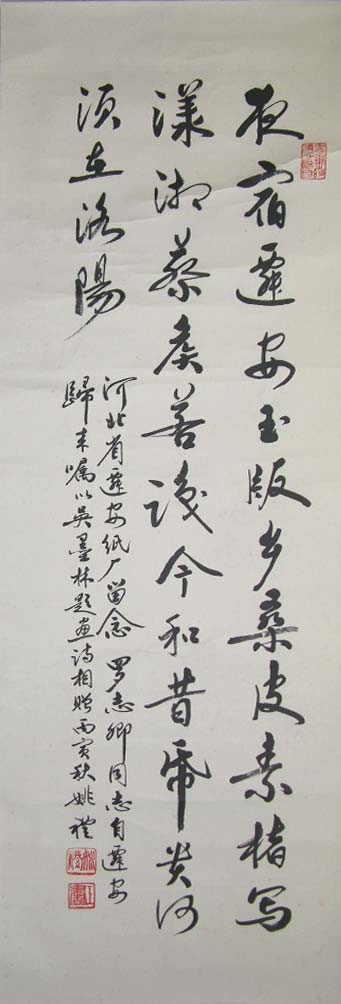 夜宿遷安玉版乡桑皮素楮写
漾湘蔡侯善識今和昔帋貴何
须在洛陽
河北省遷安纸厂留念 罗志卿同志自遷安
歸来嘱以吴墨林题画诗相赠丙寅秋姚礼